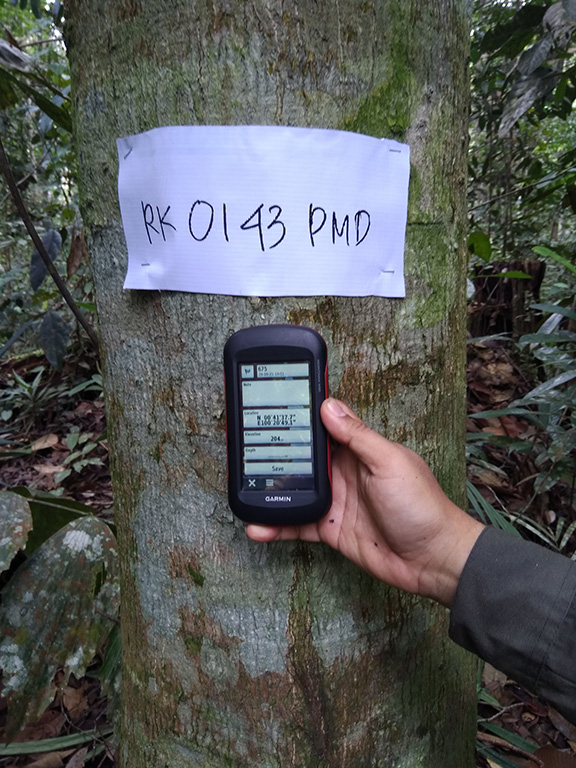 RK 0143 PMD
675
Note
Location
N 00°41'37.7"
E100°20'49.1"
Elevation
204m
Depth
Save
GARMIN